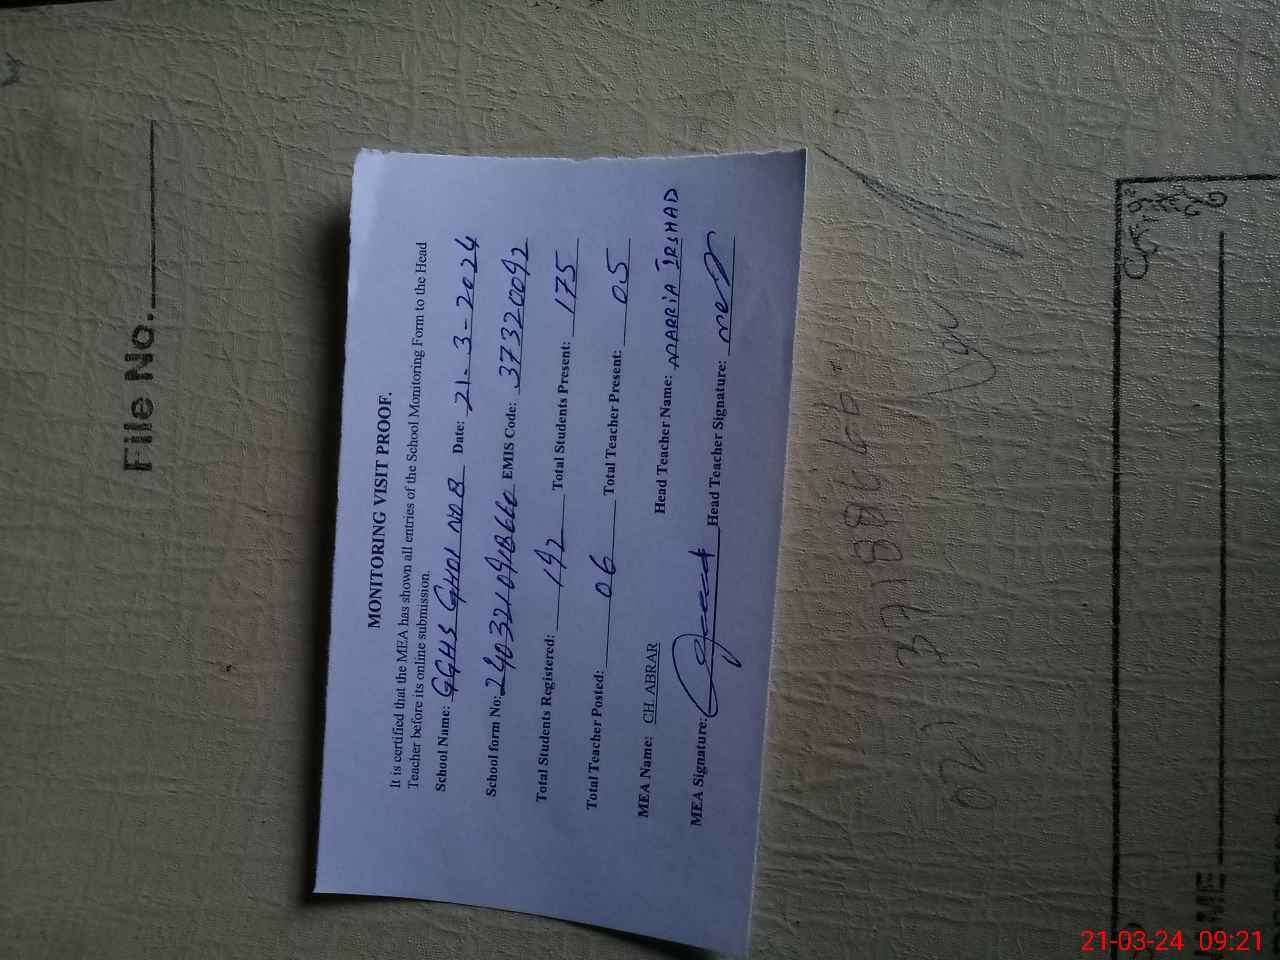 File No.
MONITORING VISIT PROOF.
It is certified that the MEA has shown all entries of the School Monitoring Form to the Head
Teacher before its online submission.
School Name: GGHS GHOI NO B Date: 21-3-2024
School form No: EMIS Code: 37320092
Total Students Registered: 192 Total Students Present: 175
Total Teacher Posted: 06 Total Teacher Present: 05
MEA Name: CH ABRAR Head Teacher Name: IRSHAD
MEA Signature: Head Teacher Signature:
21-03-24 09:21